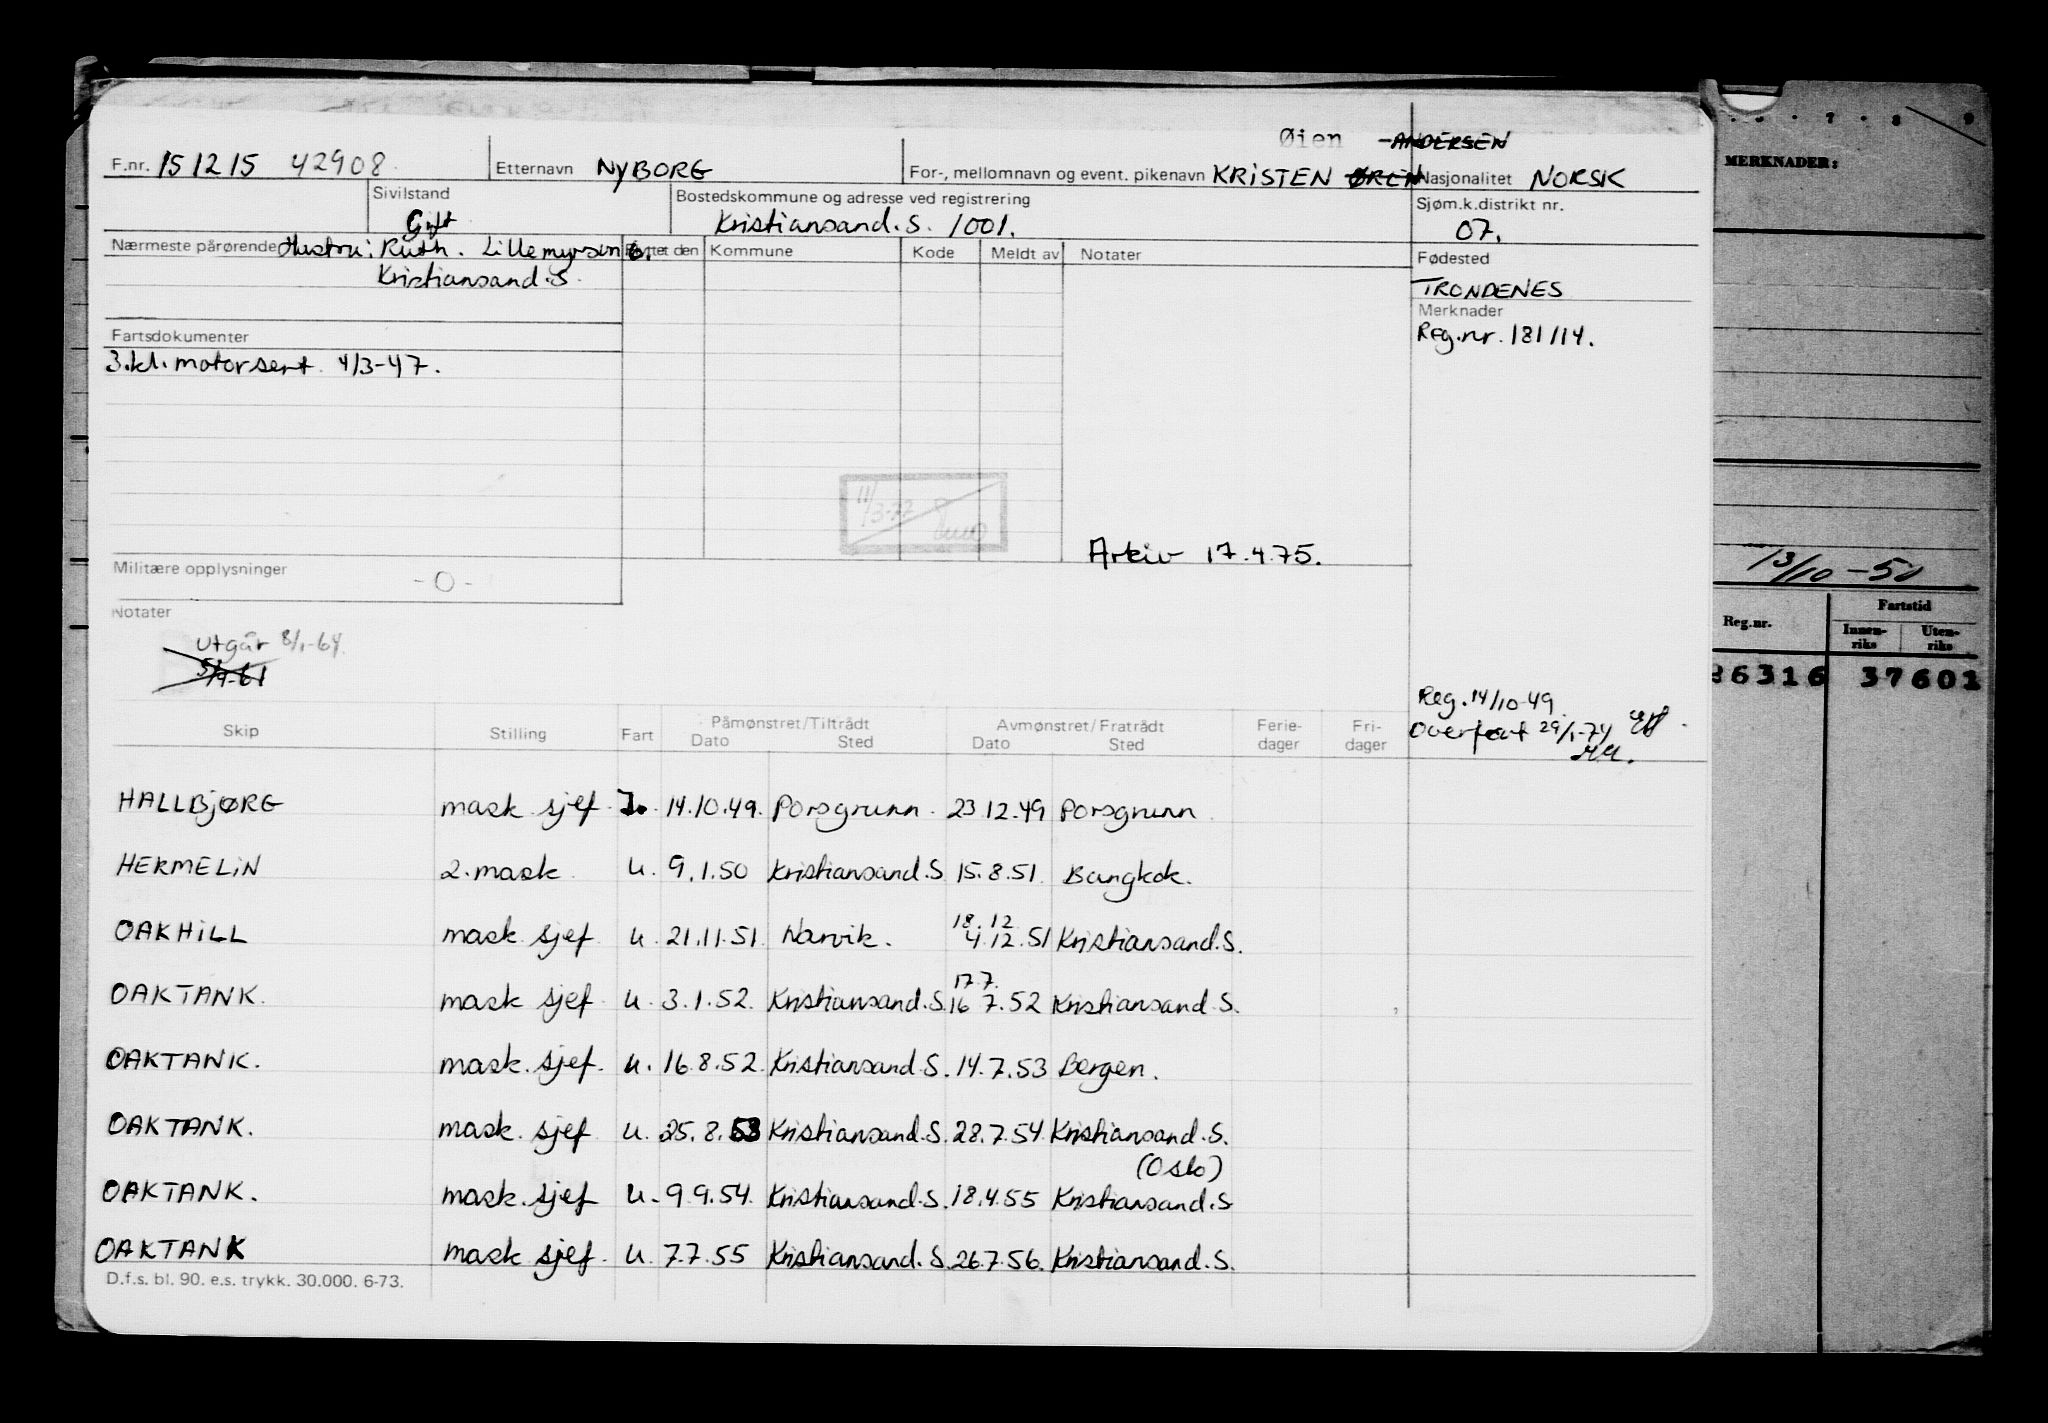 Øien ANDERSEN
F.nr. 151215 42908 Etternavn NYBORG For-, mellomnavn og event. pikenavn KRISTEN Nasjonalitet NORSK
Sivilstand Gift Bostedskommune og adresse ved registrering Kristiansand.S. 1001. Sjøm.k.distrikt nr. 07.
Nærmeste pårørende Hustru: Ruth. Lillemyrsen 6. Flyttet den Kommune Kode Meldt av Notater
Kristiansand.S.
Fødested
TRONDENES
Merknader
Reg.nr. 181/14.
Fartsdokumenter
3.kl. motorsert 4/3-47.
11/3-77
Arkiv 17.4.75.
Militære opplysninger -0-
Notater
utgår 8/1-64.
Reg. 14/10-49.
Overført 29/1-74
Skip Stilling Fart Påmønstret/Tiltrådt Dato Sted Avmønstret/Fratrådt Dato Sted Ferie-dager Fri-dager
HALLBJØRG mask sjef I. 14.10.49. Porsgrunn. 23.12.49 Porsgrunn.
HERMELIN 2. mask. u. 9.1.50 Kristiansand.S 15.8.51. Bangkok.
18. 12
OAKHILL mask. sjef u. 21.11.51. Narvik. 4.12.51 Kristiansand.S.
17.7.
OAKTANK. mask sjef. u. 3.1.52. Kristiansand.S. 16 7.52 Kristiansand S.
OAKTANK. mask. sjef. u. 16.8.52. Kristiansand.S. 14.7.53 Bergen.
OAKTANK. mask. sjef u. 25.8.53 Kristiansand.S. 28.7.54. Kristiansand.S.
(Oslo)
OAKTANK. mask. sjef u. 9.9.54. Kristiansand.S. 18.4.55 Kristiansand.S
OAKTANK mask sjef. u. 7.7.55 Kristiansand.S. 26.7.56. Kristiansand.S.
D.f.s. bl. 90. e.s. trykk. 30.000. 6-73.
7 8 9
MERKNADER:
13/10-50
Reg.nr. Fartstid
Innen-riks Uten-riks
26316 37601